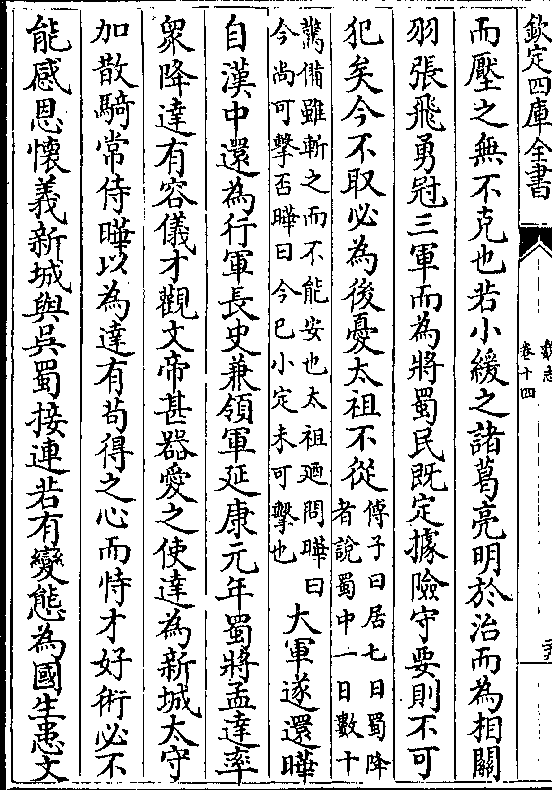 欽定四庫全書
魏志
卷十四
而壓之無不克也若小緩之諸葛亮明於治而為相關
羽張飛勇冠三軍而為將蜀民既定據險守要則不可
犯矣今不取必為後憂太祖不從
傅子曰居七日蜀降
者說蜀中一日數十
驚備雖斬之而不能安也太祖廼問曄曰
今尚可擊否曄曰今已小定未可擊也
大軍遂還曄
自漢中還為行軍長史兼領軍延康元年蜀將孟達率
衆降達有容儀才觀文帝甚器愛之使達為新城太守
加散騎常侍曄以為達有茍得之心而恃才好術必不
能感恩懷義新城與吳蜀接連若有變態為國生患文